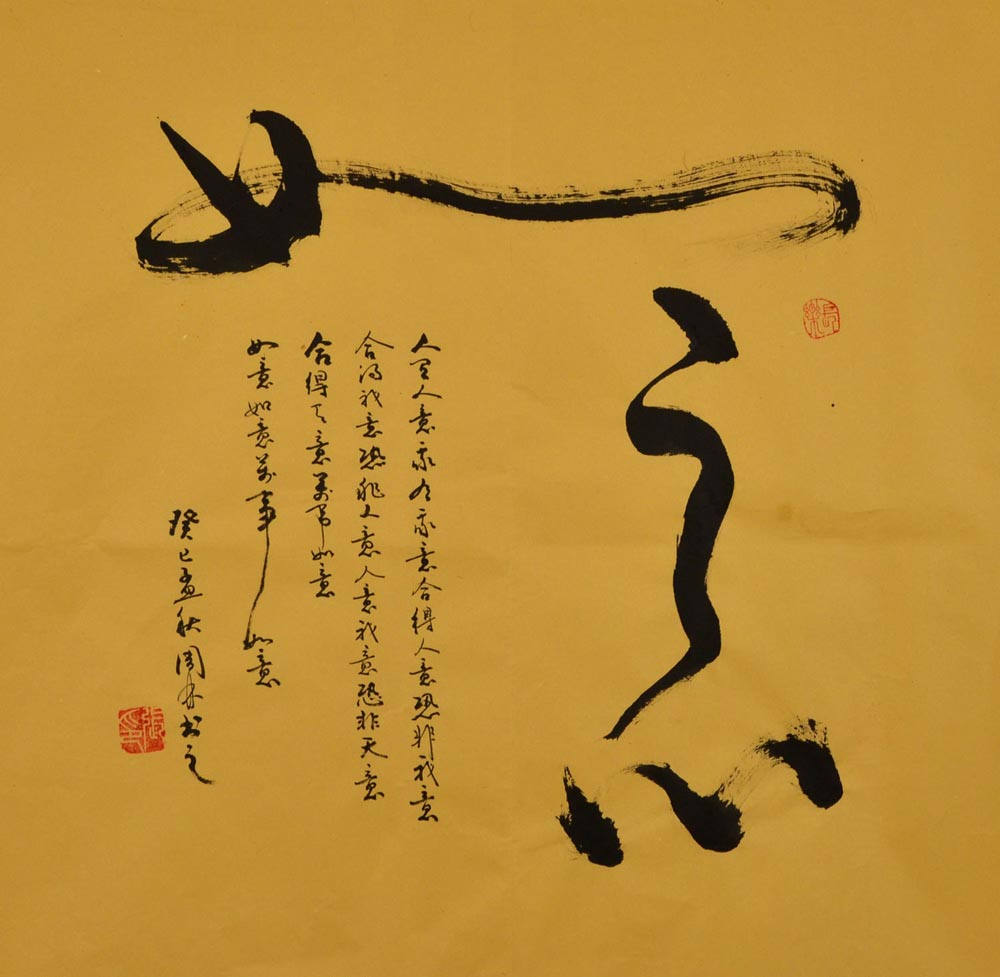 如意
長樂
人有人意我有我意合得人意恐非我意
合得我意恐非人意人意我意恐非天意
合得天意萬事如意
如意如意萬事如意
癸巳孟秋周林书之